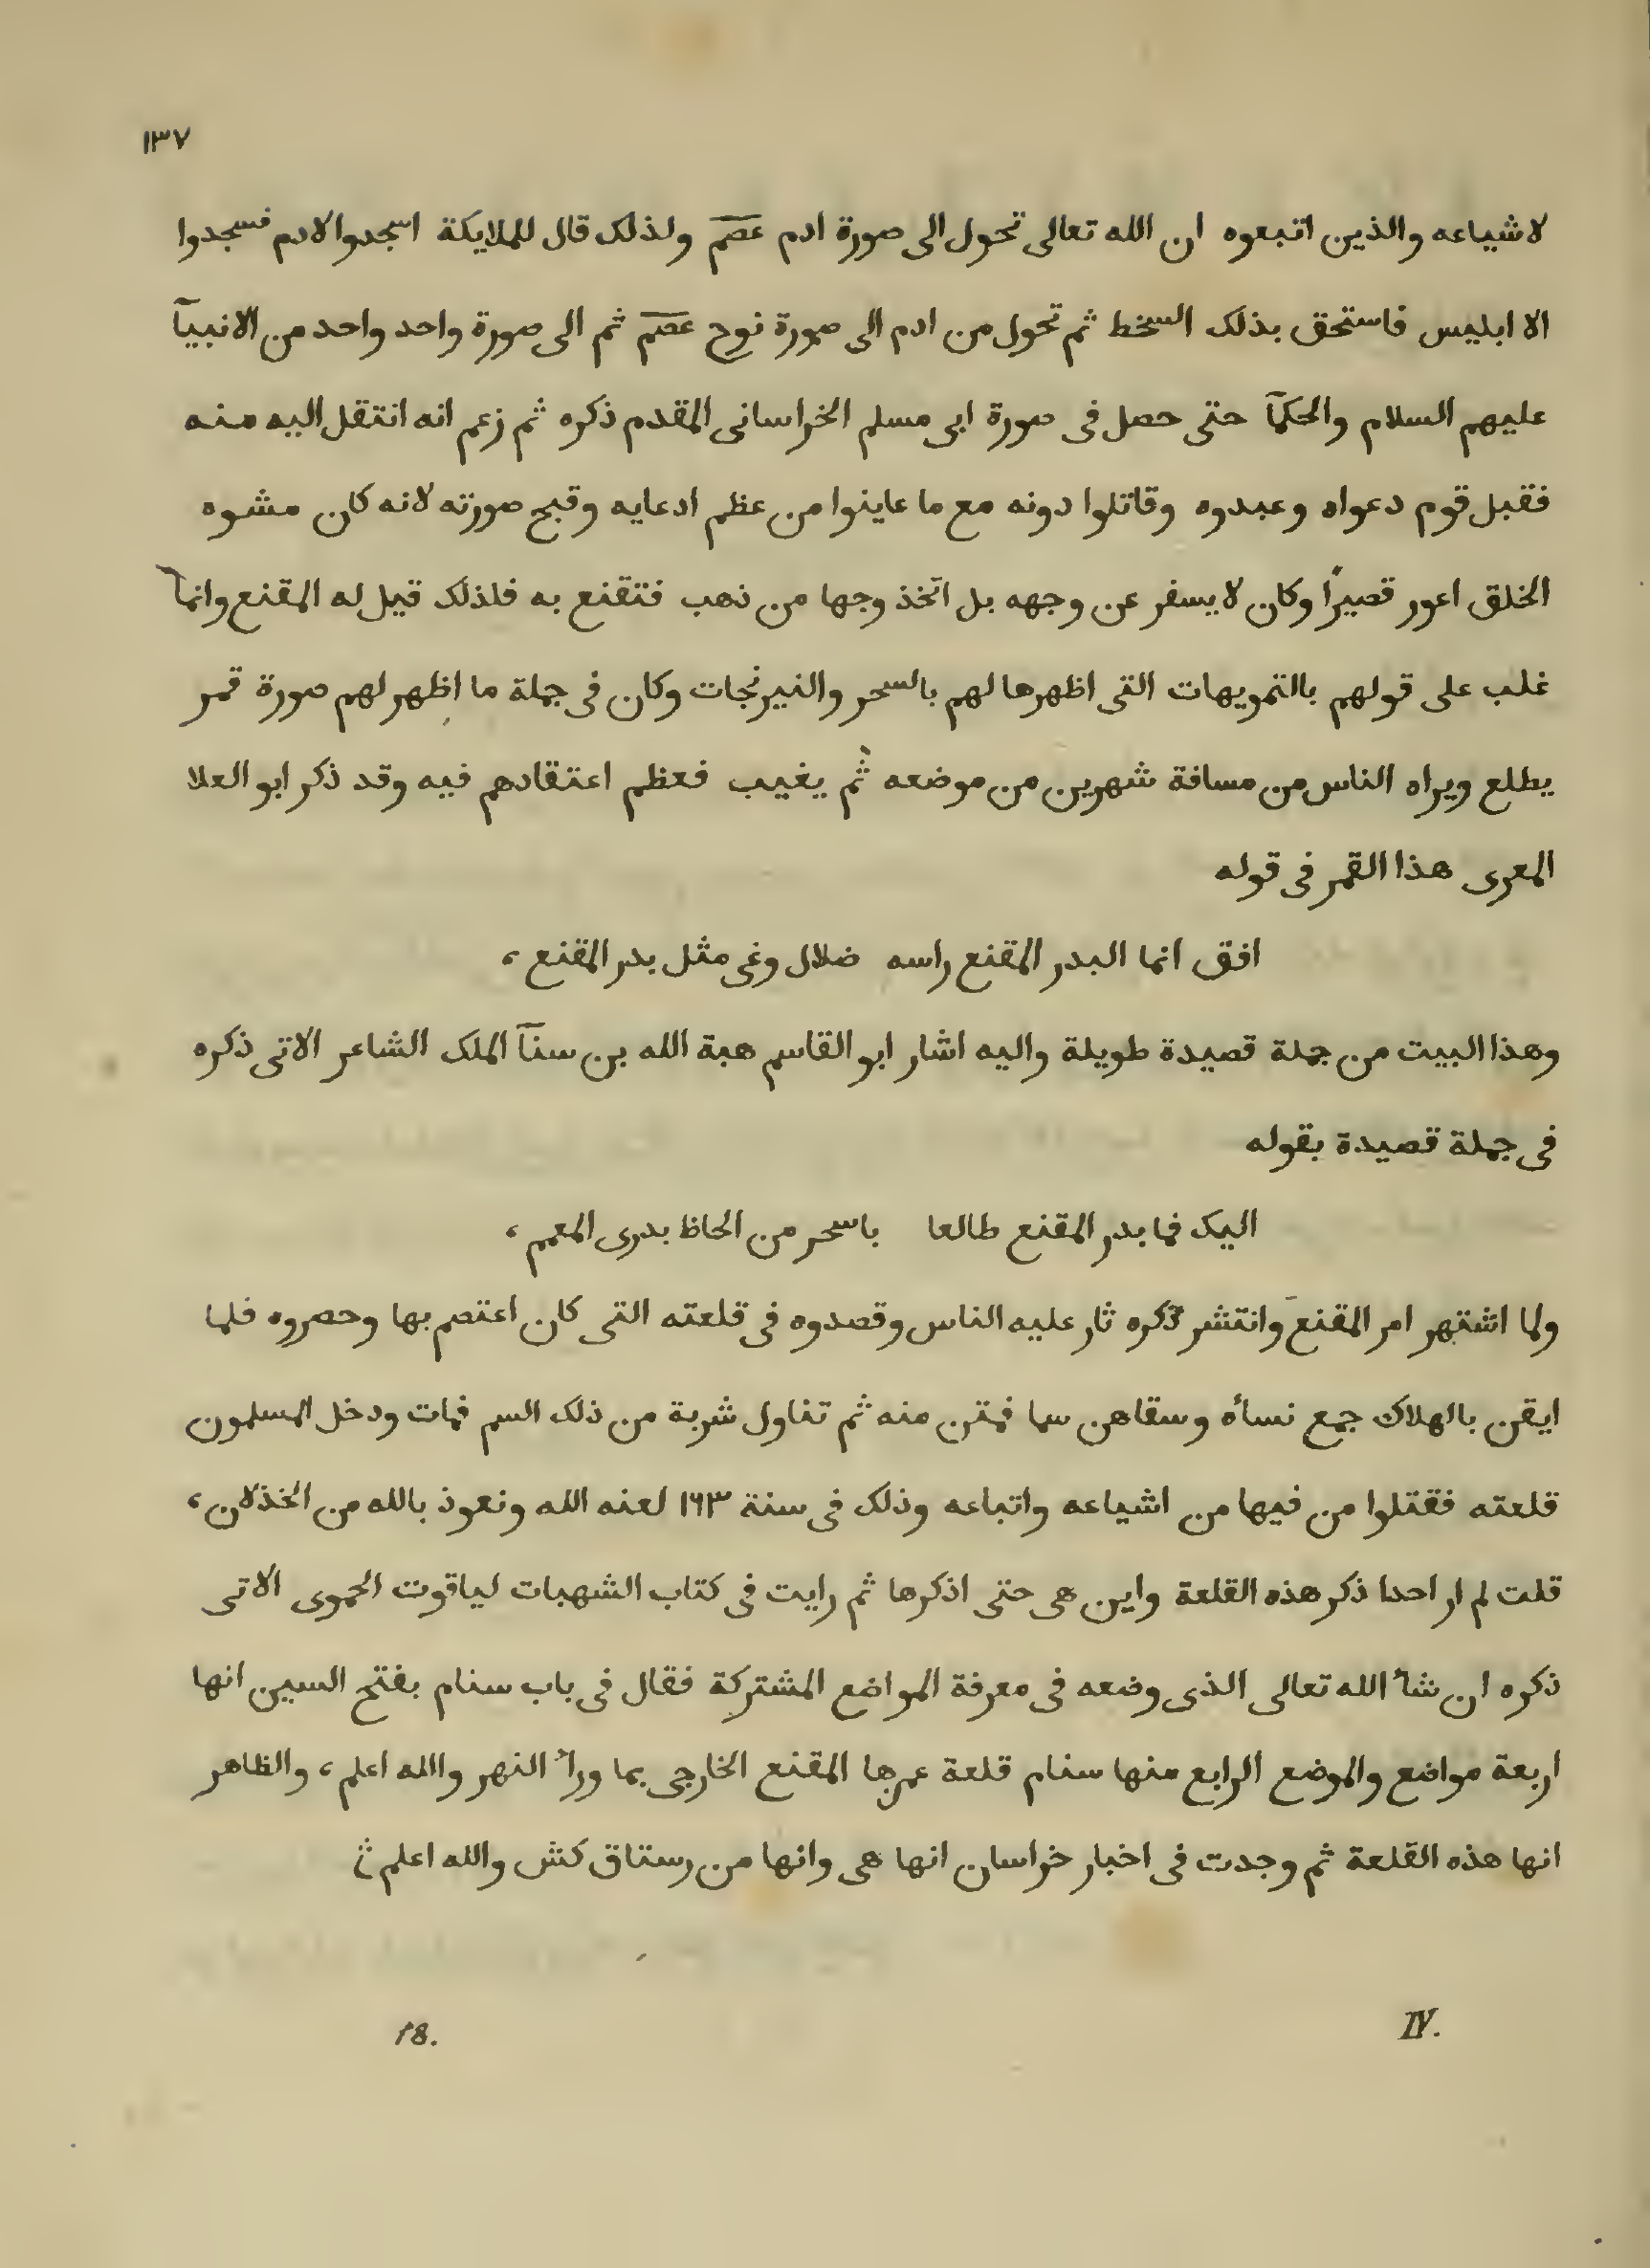 ١٣٧
لاشياعه والذين اتبعوه ان الله تعالى تحول الى صورة ادم عصم ولذلك قال للملايكة اسجدوا لادم فسجدوا
الا ابليس فاستحق بذلك السخط ثم تحول من ادم الى صورة نوح عصم ثم الى صورة واحد واحد من الانبيآ
عليهم السلام والحكمآ حتى حصل فى صورة ابى مسلم الخراسانى المقدم ذكره ثم زعم انه انتقل اليه منه
فقبل قوم دعواه وعبدوه وقاتلوا دونه مع ما عاينوا من عظم ادعايه وقبح صورته لانه كان مشوه
الخلق اعور قصيرًا وكان لا يسفر عن وجهه بل اتخذ وجها من ذهب فتقنع به فلذلك قيل له المقنع وانما
غلب على قولهم بالتمويهات التى اظهرها لهم بالسحر والنيرنجات وكان فى جملة ما اظهر لهم صورة قمر
يطلع ويراه الناس من مسافة شهرين من موضعه ثم يغيب فعظم اعتقادهم فيه وقد ذكر ابو العلا
المعرى هذا القمر فى قوله
افق انما البدر المقنع راسه ضلال وغى مثل بدر المقنع ،
وهذا البيت من جملة قصيدة طويلة واليه اشار ابو القاسم هبة الله بن سنآ الملك الشاعر الاتى ذكره
فى جملة قصيدة بقوله
اليك فما بدر المقنع طالعا باسحر من الحاظ بدرى المعمم ،
ولما اشتهر امر المقنع وانتشر ذكره ثار عليه الناس وقصدوه فى قلعته التى كان اعتصم بها وحصروه فلما
ايقن بالهلاك جمع نسأه وسقاهن سما فمتن منه ثم تناول شربة من ذلك السم فمات ودخل المسلمون
قلعته فقتلوا من فيها من اشياعه واتباعه وذلك فى سنة ١٦٣ لعنه الله ونعوذ بالله من الخذلان ،
قلت لم ار احدا ذكر هذه القلعة واين هى حتى اذكرها ثم رايت فى كتاب الشهبات لياقوت الحموى الاتى
ذكره ان شأ الله تعالى الذى وضعه فى معرفة المواضع المشتركة فقال فى باب سنام بفتح السين انها
اربعة مواضع والموضع الرابع منها سنام قلعة عمرها المقنع الخارجى بما ورأ النهر والله اعلم ، والظاهر
انها هذه القلعة ثم وجدت فى اخبار خراسان انها هى وانها من رستاق كش والله اعلم
IV. 18.